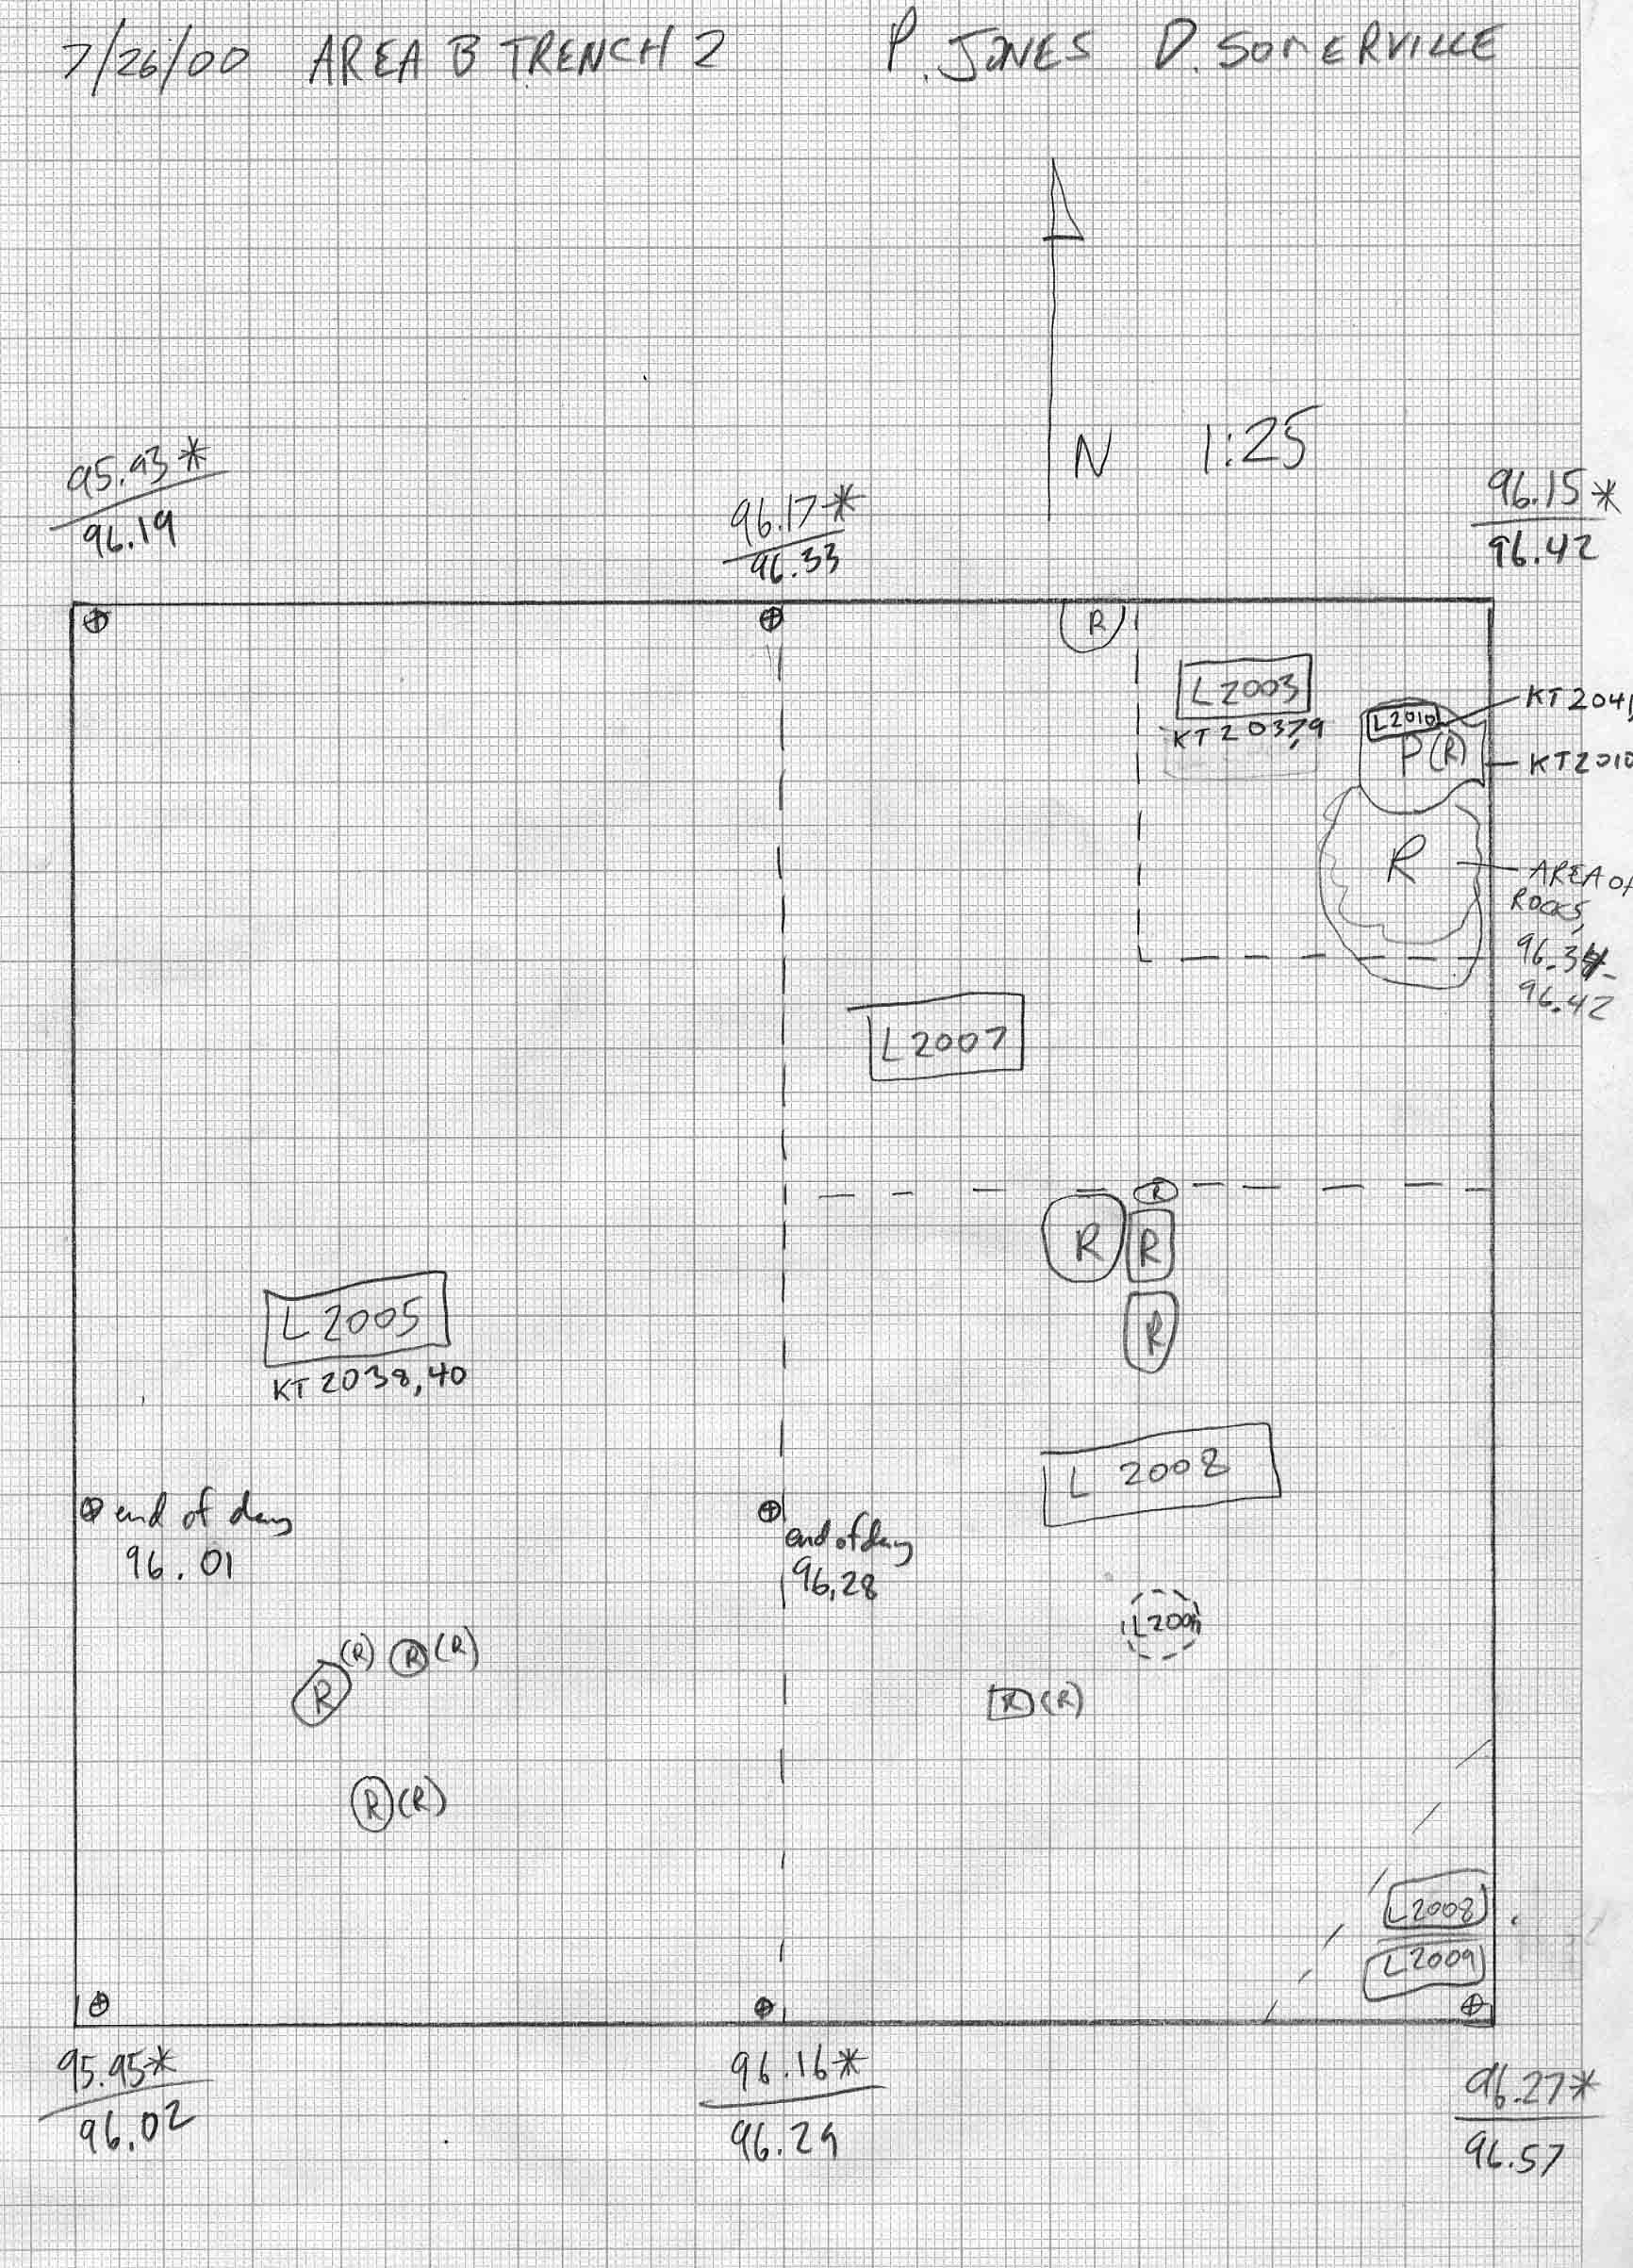 7/26/00 AREA B TRENCH 2 P. JONES D. SOMERVILLE
N 1:25
95.93*
96.19
96.17*
96.33
96.15*
96.42
R
L 2003
KT 2037,9
L2010
KT 2041
P(R)
KT2010
R
AREA OF
ROCKS,
96.34-
96.42
L 2007
R
R R
R
L 2005
KT 2038,40
L 2008
end of day
96.01
end of day
96.28
(R) R (R)
R
R (R)
R (R)
L2008
L2009
95.95*
96.02
96.16*
96.29
96.27*
96.57